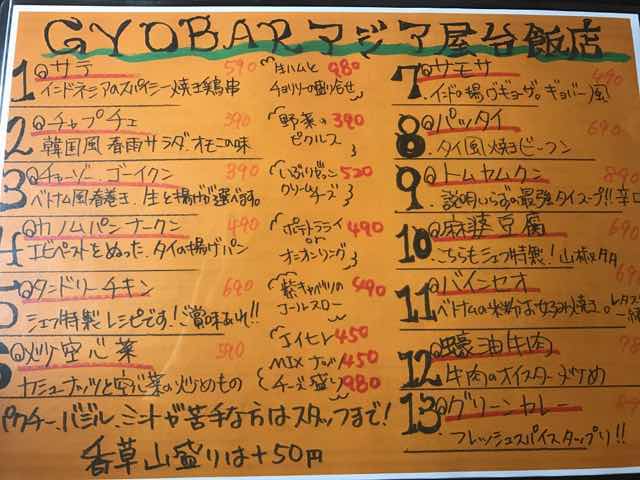 GYOBAR アジア屋台飯店
1 @サテ 590
インドネシアのスパイシー焼き鶏串
2 @チャプチェ 390
韓国風 春雨サラダ。オモニの味
3 @チョーゾー、ゴーイクン 390
ベトナム風春巻き、生と揚げが選べます。
4 @カノムパンナークン 490
エビペーストをぬった、タイの揚げパン
5 @タンドリーチキン 690
シェフ特製レシピです!ご賞味あれ!!
6 @炒空心菜 590
カシューナッツと空心菜の炒めもの
生ハムと 980
チョリソーの盛り合せ
野菜の 390
ピクルス
いぶりガッコ 520
クリームチーズ
ポテトフライ 490
or
オニオンリング
紫キャベツの 490
コールスロー
エイヒレ 450
MIXナッツ 450
チーズ盛り 980
7 @サモサ 490
インドの揚げギョーザ。ギョバー風
8 @パッタイ 690
タイ風焼きビーフン
9 @トムヤムクン 890
説明いらずの最強タイスープ!!辛口
10 @麻婆豆腐
こちらもシェフ特製!山椒
11 @バインセオ
ベトナムの米粉お好み焼き。レタス
12 @蠔油牛肉
牛肉のオイスターソース炒め
13 @グリーンカレー
フレッシュスパイスタップリ!!
パクチー、バジル、ミントが苦手な方はスタッフまで!
香草山盛りは+50円